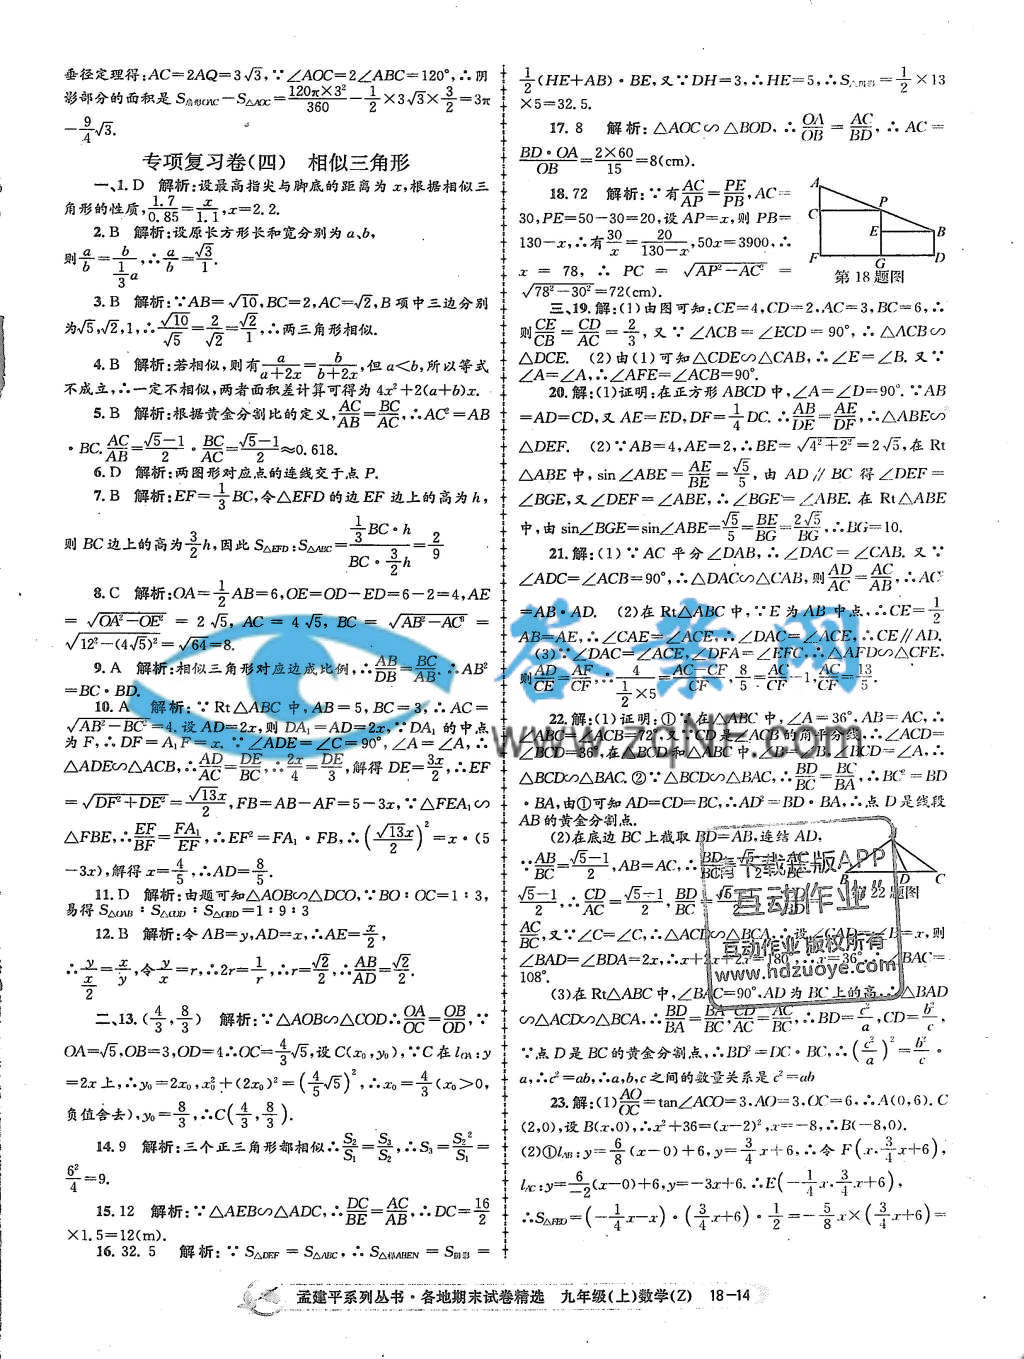 垂径定理得:AC=2AQ=3√3,∵∠AOC=2∠ABC=120°,∴阴
影部分的面积是 S扇形OAC－S△AOC=120π×3²/360－1/2×3√3×3/2=3π
－9/4√3.
专项复习卷(四) 相似三角形
一、1. D 解析:设最高指尖与脚底的距离为 x,根据相似三
角形的性质,1.7/0.85=x/1.1,x=2.2.
2. B 解析:设原长方形长和宽分别为 a、b,
则a/b=b/(1/3 a),∴a/b=√3/1.
3. B 解析:∵AB=√10,BC=2,AC=√2,B 项中三边分别
为√5,√2,1,∴√10/√5=2/√2=√2/1,∴两三角形相似.
4. B 解析:若相似,则有a/(a+2x)=b/(b+2x),但 a<b,所以等式
不成立,∴一定不相似,两者面积差计算可得为 4x²+2(a+b)x.
5. B 解析:根据黄金分割比的定义,AC/AB=BC/AC,∴AC²=AB
·BC.AC/AB=(√5−1)/2·BC/AC=(√5−1)/2≈0.618.
6. D 解析:两图形对应点的连线交于点 P.
7. B 解析:EF=1/3BC,令△EFD 的边 EF 边上的高为 h,
则 BC 边上的高为3/2h,因此 S△EFD:S△ABC=(1/3BC·h)/(BC·3/2h)=2/9
8. C 解析:OA=1/2AB=6,OE=OD－ED=6－2=4,AE
=√(OA²−OE²)=2√5,AC=4√5,BC=√(AB²−AC²)=
√(12²−(4√5)²)=√64=8.
9. A 解析:相似三角形对应边成比例,∴AB/DB=BC/AB.∴AB²
=BC·BD.
10. A 解析:∵Rt△ABC 中,AB=5,BC=3,∴AC=
√(AB²−BC²)=4.设 AD=2x,则 DA₁=AD=2x,∵DA₁ 的中点
为 F,∴DF=A₁F=x,∵∠ADE=∠C=90°,∠A=∠A,∴
△ADE∽△ACB,∴AD/AC=DE/BC,∴2x/4=DE/3,解得 DE=3x/2,∴EF
=√(DF²+DE²)=√13x/2,FB=AB−AF=5−3x,∵△FEA₁∽
△FBE,∴EF/BF=FA₁/EF,∴EF²=FA₁·FB,∴(√13x/2)²=x·(5
−3x),解得 x=4/5,∴AD=8/5.
11. D 解析:由题可知△AOB∽△DCO,∵BO:OC=1:3,
易得 S△OAB:S△COD:S△OBD=1:9:3
12. B 解析:令 AB=y,AD=x,∴AE=x/2,
∴y/(x/2)=x/y,令y/x=r,∴2r=1/r,∴r=√2/2,∴AB/AD=√2/2.
二、13.(4/3,8/3) 解析:∵△AOB∽△COD∴OA/OC=OB/OD,∵
OA=√5,OB=3,OD=4∴OC=4/3√5,设 C(x₀,y₀),∵C 在 lOA:y
=2x 上,∴y₀=2x₀,x₀²+(2x₀)²=(4/3√5)²,∴x₀=4/3(x₀>0,
负值舍去),y₀=8/3,∴C(4/3,8/3).
14. 9 解析:三个正三角形都相似∴S₂/S₁=S₃/S₂,∴S₃=S₂²/S₁=
6²/4=9.
15. 12 解析:∵△AEB∽△ADC,∴DC/BE=AC/AB,∴DC=16/2
×1.5=12(m).
16. 32.5 解析:∵S△DEF=S△ABC,∴S△梯ABEN=S阴影=
1/2(HE+AB)·BE,又∵DH=3,∴HE=5,∴S△阴影=1/2×13
×5=32.5.
17. 8 解析:△AOC∽△BOD,∴OA/OB=AC/BD,∴AC=
BD·OA/OB=2×60/15=8(cm).
18. 72 解析:∵有AC/AP=PE/PB,AC=
30,PE=50−30=20,设 AP=x,则 PB=
130−x,∴有30/x=20/(130−x),50x=3900,∴
x=78,∴PC=√(AP²−AC²)=
√(78²−30²)=72(cm).
A
C
P
E
B
F
G
D
第 18 题图
三、19. 解:(1)由图可知:CE=4,CD=2,AC=3,BC=6,∴
则CE/CB=CD/AC=2/3,又∵∠ACB=∠ECD=90°,∴△ACB∽
△DCE. (2)由(1)可知△CDE∽△CAB,∴∠E=∠B.又∵
∠A=∠A,∴∠AFE=∠ACB=90°.
20. 解:(1)证明:在正方形 ABCD 中,∠A=∠D=90°.∵AB
=AD=CD,又 AE=ED,DF=1/4DC.∴AB/DE=AE/DF,∴△ABE∽
△DEF. (2)∵AB=4,AE=2,∴BE=√(4²+2²)=2√5,在 Rt
△ABE 中,sin∠ABE=AE/BE=√5/5,由 AD∥BC 得∠DEF=
∠BGE,又∠DEF=∠ABE,∴∠BGE=∠ABE.在 Rt△ABE
中,由 sin∠BGE=sin∠ABE=√5/5=BE/BG=2√5/BG,∴BG=10.
21. 解:(1)∵AC 平分∠DAB,∴∠DAC=∠CAB.又∵
∠ADC=∠ACB=90°,∴△DAC∽△CAB,则AD/AC=AC/AB,∴AC²
=AB·AD. (2)在 Rt△ABC 中,∵E 为 AB 中点,∴CE=1/2
AB=AE,∴∠CAE=∠ACE,∴∠DAC=∠ACE,∴CE∥AD.
(3)∵∠DAC=∠ACE,∠DFA=∠EFC,∴△AFD∽△CFE.
则AD/CE=AF/CF,∴4/(1/2×5)=(AC−CF)/CF,8/5=AC/CF−1,AC/CF=13/5.
22. 解:(1)证明:①∵在△ABC 中,∠A=36°.AB=AC,∴
∠ABC=∠ACB=72°.又∵CD 是∠ACB 的角平分线,∴∠ACD=
∠BCD=36°.在△BCD 和△ABC 中,∠B=∠B,∠BCD=∠A,∴
△BCD∽△BAC.②∵△BCD∽△BAC,∴BD/BC=BC/BA,∴BC²=BD
·BA,由①可知 AD=CD=BC,∴AD²=BD·BA,∴点 D 是线段
AB 的黄金分割点.
(2)在底边 BC 上截取 BD=AB,连结 AD,
∵AB/BC=(√5−1)/2,AB=AC,∴BD
(√5−1)/2,∴CD/AC=(√5−1)/2,BD/BC
B
D
C
22 题图
AC/BC,又∵∠C=∠C,∴△ACD∽△BCA.∴设∠CAD=∠B=x,则
∠BAD=∠BDA=2x,∴x+2x+2x=180°,∴x=36°.∴∠BAC=
108°.
(3)在 Rt△ABC 中,∠BAC=90°.AD 为 BC 上的高.∴△BAD
∽△ACD∽△BCA.∴BD/BA=BA/BC,CD/AC=AC/BC,∴BD=c²/a,CD=b²/c,
∵点 D 是 BC 的黄金分割点,∴BD²=DC·BC,∴(c²/a)²=b²/c·
a,∴c²=ab,∴a,b,c 之间的数量关系是 c²=ab
23. 解:(1)AO/OC=tan∠ACO=3.AO=3,OC=6,∴A(0,6).C
(2,0),设 B(x,0),∴x²+36=(x−2)²,x=−8,∴B(−8,0).
(2)①lAB:y=6/8(x−0)+6,y=3/4x+6,∴令 F(x,3/4x+6),
lAC:y=6/−2(x−0)+6,y=−3x+6.∴E(−1/4x,3/4x+6),
∴S△FED=(−1/4x−x)·(3/4x+6)·1/2=−5/8x×(3/4x+6)=
答案网
www.zqnf.com
请下载正版APP
互动作业
互动作业 版权所有
www.hdzuoye.com
孟建平系列丛书·各地期末试卷精选 九年级(上)数学(Z) 18−14